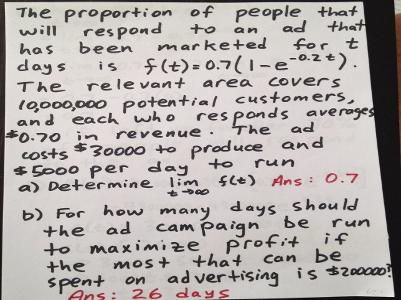 The proportion of people that
will respond to an ad that
has been marketed for t
days is f(t)=0.7(1-e^-0.2t).
The relevant area covers
10,000,000 potential customers,
and each who responds averages
$0.70 in revenue. The ad
costs $30000 to produce and
$5000 per day to run
a) Determine lim t→∞ f(t) Ans: 0.7
b) For how many days should
the ad campaign be run
to maximize profit if
the most that can be
spent on advertising is $200000?
Ans: 26 days